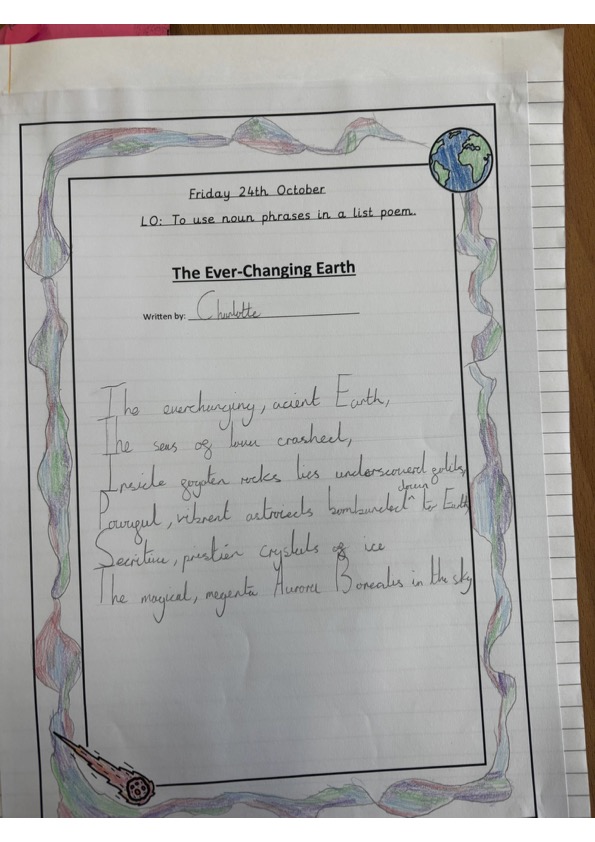 Friday 24th October
LO: To use noun phrases in a list poem.
The Ever-Changing Earth
Written by: Charlotte
The everchanging, acient Earth,
The seas of lava crashed,
Inside forgoten rocks lies underscoverd golds,
Powerful, vibrent astroieds bombarded down to Earth
Secritive, prestien crystals of ice
The magical, megenta Aurora Borealis in the sky